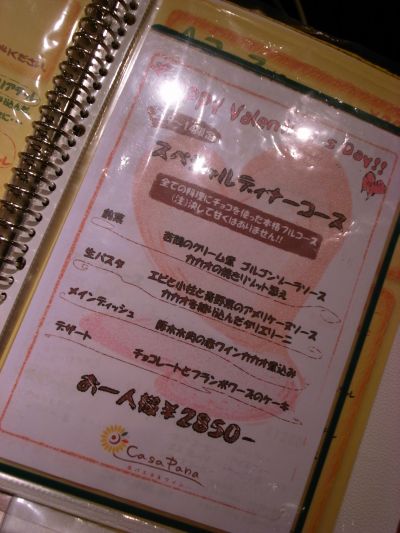 Happy Valentine's Day!!
スペシャルディナーコース
全ての料理にチョコを使った本格フルコース
(注)決して甘くはありません!!
前菜
若鶏のクリーム煮 ゴルゴンゾーラソース
カカオの焼きリゾット添え
生パスタ
エビと小柱と春野菜のアメリケーヌソース
カカオを練り込んだタリエリーニ
メインディッシュ
赤ワインカカオ煮込み
デザート
チョコレートとフランボワーズのケーキ
お一人様¥2850-
Casa Pana
生パスタ&ワイン